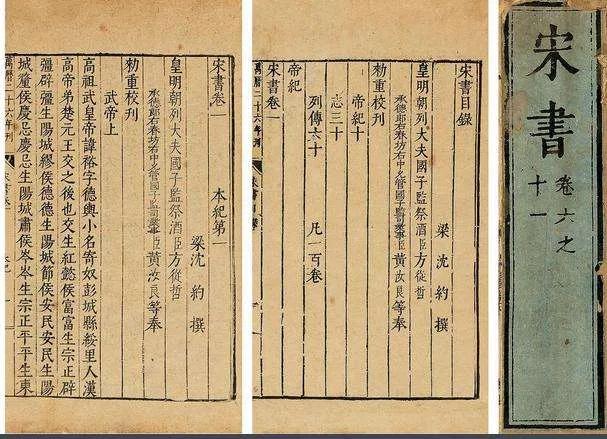 宋書
卷六之
十一
宋書目錄
梁沈約撰
皇明朝列大夫國子監祭酒臣方從哲
承德郎右春坊右中允管國子監司業事臣黃汝良等奉
勑重校刊
帝紀十
志三十
列傳六十 凡一百卷
帝紀
宋書卷一
萬曆二十六年刊
宋書卷一 本紀第一
梁沈約撰
皇明朝列大夫國子監祭酒臣方從哲
承德郎右春坊右中允管國子監司業事臣黃汝良等奉
勑重校刊
武帝上
高祖武皇帝諱裕字德輿小名寄奴彭城縣綏里人漢
高帝弟楚元王交之後也交生紅懿侯富富生宗正辟
彊辟彊生陽城繆侯德德生陽城節侯安民安民生陽
城釐侯慶忌慶忌生陽城肅侯岑岑生宗正平平生東
萬曆二十六年刊